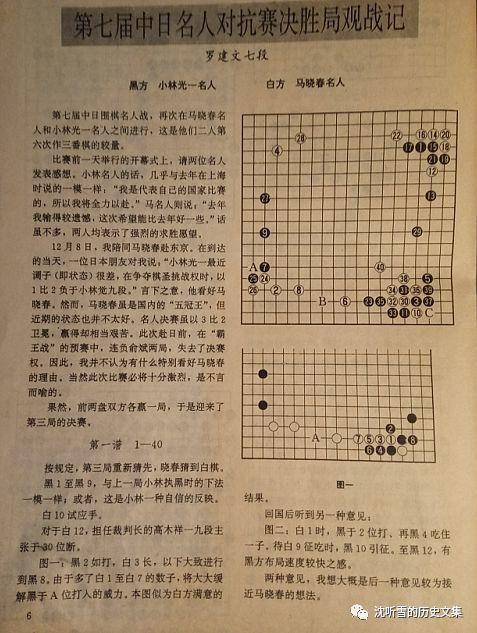 第七届中日名人对抗赛决胜局观战记
罗建文七段
黑方 小林光一名人 白方 马晓春名人
第七届中日围棋名人战，再次在马晓春名
人和小林光一名人之间进行，这是他们二人第
六次作三番棋的较量。
比赛前一天举行的开幕式上，请两位名人
发表感想。小林名人的话，几乎与去年在上海
时说的一模一样：“我是代表自己的国家比赛
的，所以我将全力以赴。”马名人则说：“去年
我输得较遗憾，这次希望能比去年好一些。”话
虽不多，两人均表示了强烈的求胜愿望。
12月8日，我陪同马晓春赴东京。在到达
的当天，一位日本朋友对我说：“小林光一最近
调子（即状态）很差，在争夺棋圣挑战权时，以
1比2负于小林觉九段。”言下之意，他看好马
晓春。然而，马晓春虽是国内的“五冠王”，但
近期的状态也并不太好。名人决赛虽以3比2
卫冕，赢得却相当艰苦。此次赴日前，在“霸
王战”的预赛中，连负俞斌两局，失去了决赛
权。因此，我并不认为有什么特别看好马晓春
的理由。当然此次比赛必将十分激烈，是不言
而喻的。
果然，前两盘双方各赢一局，于是迎来了
第三局的决赛。
第一谱 1—40
按规定，第三局重新猜先，晓春猜到白棋。
黑1至黑9，与上一局小林执黑时的下法
一模一样；或者，这是小林一种自信的反映。
白10试应手。
对于白12，担任裁判长的高木祥一九段主
张于30位断。
图一，黑2如打，白3长，以下大致进行
到黑8。由于多了白1至白7的数子，将大大缓
解黑于A位打入的威力。本图似为白方满意的
6
A
B
C
A
图一
结果。
回国后听到另一种意见：
图二：白1时，黑于2位打、再黑4吃住
一子。待白9征吃时，黑10引征。至黑12，有
黑方布局速度较快之感。
两种意见，我想大概是后一种意见较为接
近马晓春的想法。
沈听雪的历史文集